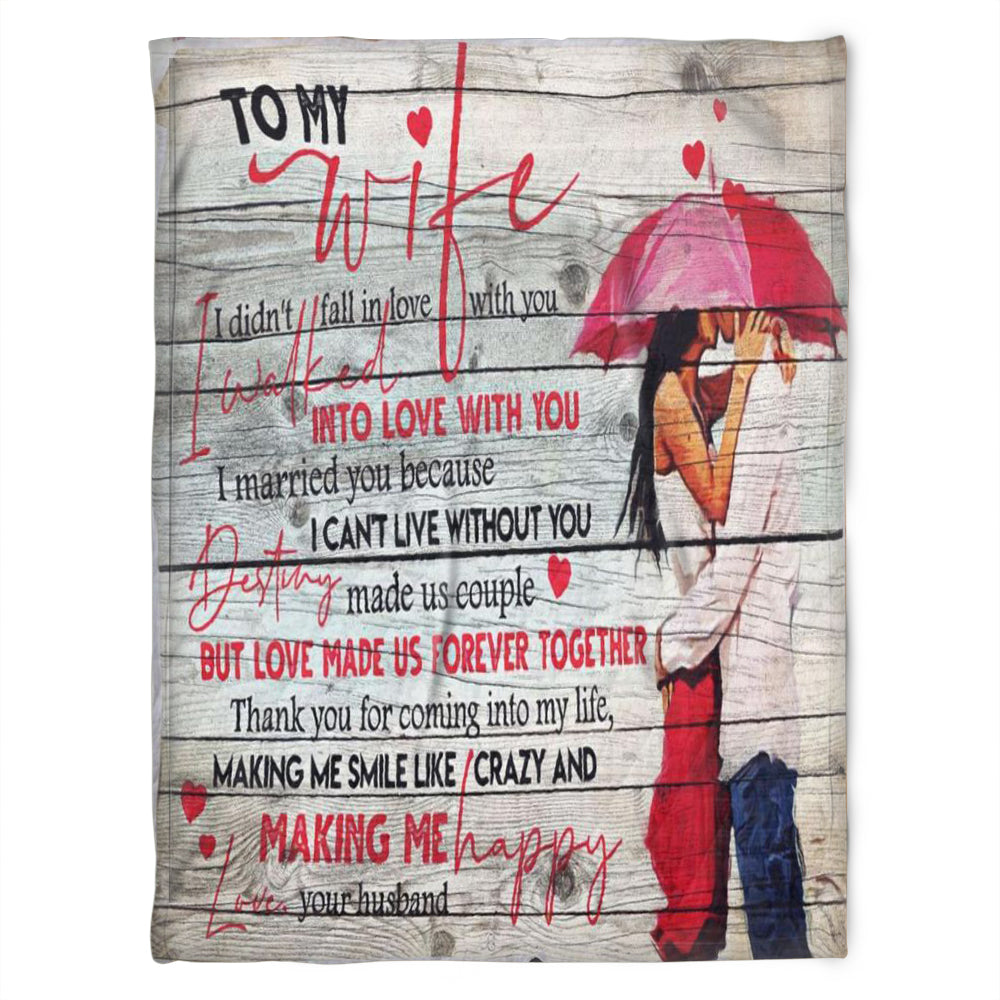 TO MY
wife
I didn't fall in love with you
I walked
INTO LOVE WITH YOU
I married you because
I CAN'T LIVE WITHOUT YOU
Destiny made us couple
BUT LOVE MADE US FOREVER TOGETHER
Thank you for coming into my life,
MAKING ME SMILE LIKE CRAZY AND
MAKING ME happy
Love, your husband